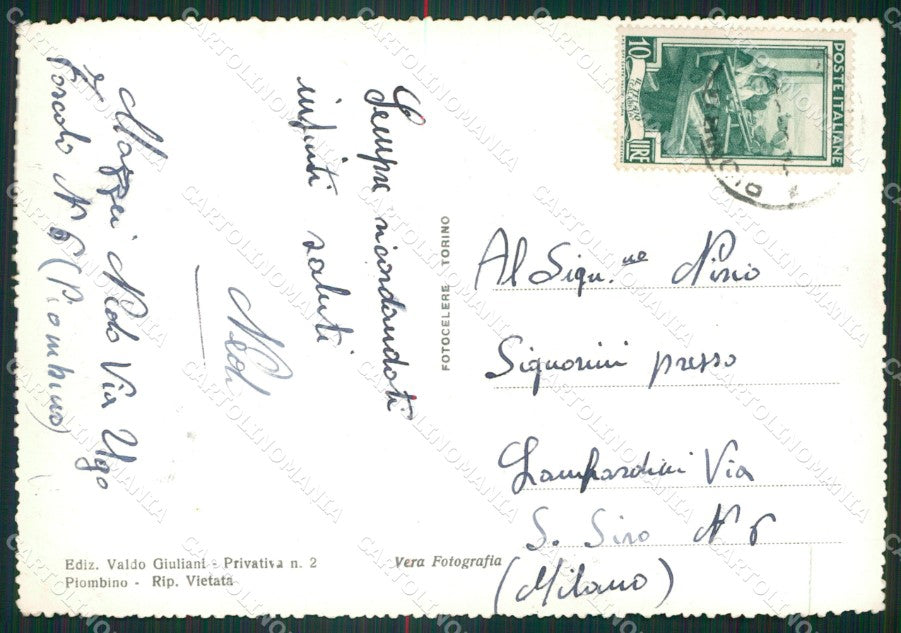 Sempre ricordandoti
infiniti saluti
Nedo
Maggi Nedo Via Ugo
Foscolo N 6 (Piombino)
POSTE ITALIANE
10 LIRE
FOTOCELERE TORINO
Al Sign.re Nino
Signorini presso
Lampardini Via
S. Siro N 6
(Milano)
Ediz. Valdo Giuliani - Privativa n. 2
Piombino - Rip. Vietata
Vera Fotografia
CARTOLINOMANIA